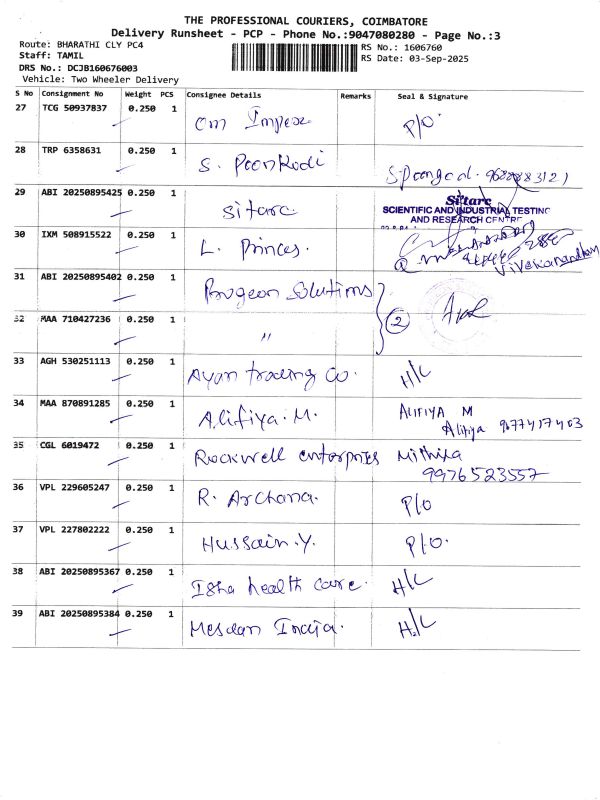 THE PROFESSIONAL COURIERS, COIMBATORE
Delivery Runsheet - PCP - Phone No.:9047080280 - Page No.:3
Route: BHARATHI CLY PC4
RS No.: 1606760
Staff: TAMIL
RS Date: 03-Sep-2025
DRS No.: DCJB160676003
Vehicle: Two Wheeler Delivery
S No Consignment No Weight PCS Consignee Details Remarks Seal & Signature
27 TCG 50937837 0.250 1 Om Impex P/O.
28 TRP 6358631 0.250 1 S. Poonkodi
29 ABI 20250895425 0.250 1 Sitarc
Sitarc
SCIENTIFIC AND INDUSTRIAL TESTING
AND RESEARCH CENTRE
30 IXM 508915522 0.250 1 L. Princes. Vivekanandhan
31 ABI 20250895402 0.250 1 Solutions
2
32 MAA 710427236 0.250 1 "
33 AGH 530251113 0.250 1 Ayan trading Co. H/C
34 MAA 870891285 0.250 1 Alifiya. M. ALIFIYA M
Alifiya 9077417403
35 CGL 6019472 0.250 1 Rockwell enterprises Mithixa
9976523557
36 VPL 229605247 0.250 1 R. Archana. P/O
37 VPL 227802222 0.250 1 Hussain.Y. P/O.
38 ABI 20250895367 0.250 1 Isha health care. H/C
39 ABI 20250895384 0.250 1 Mesdan India. H/C